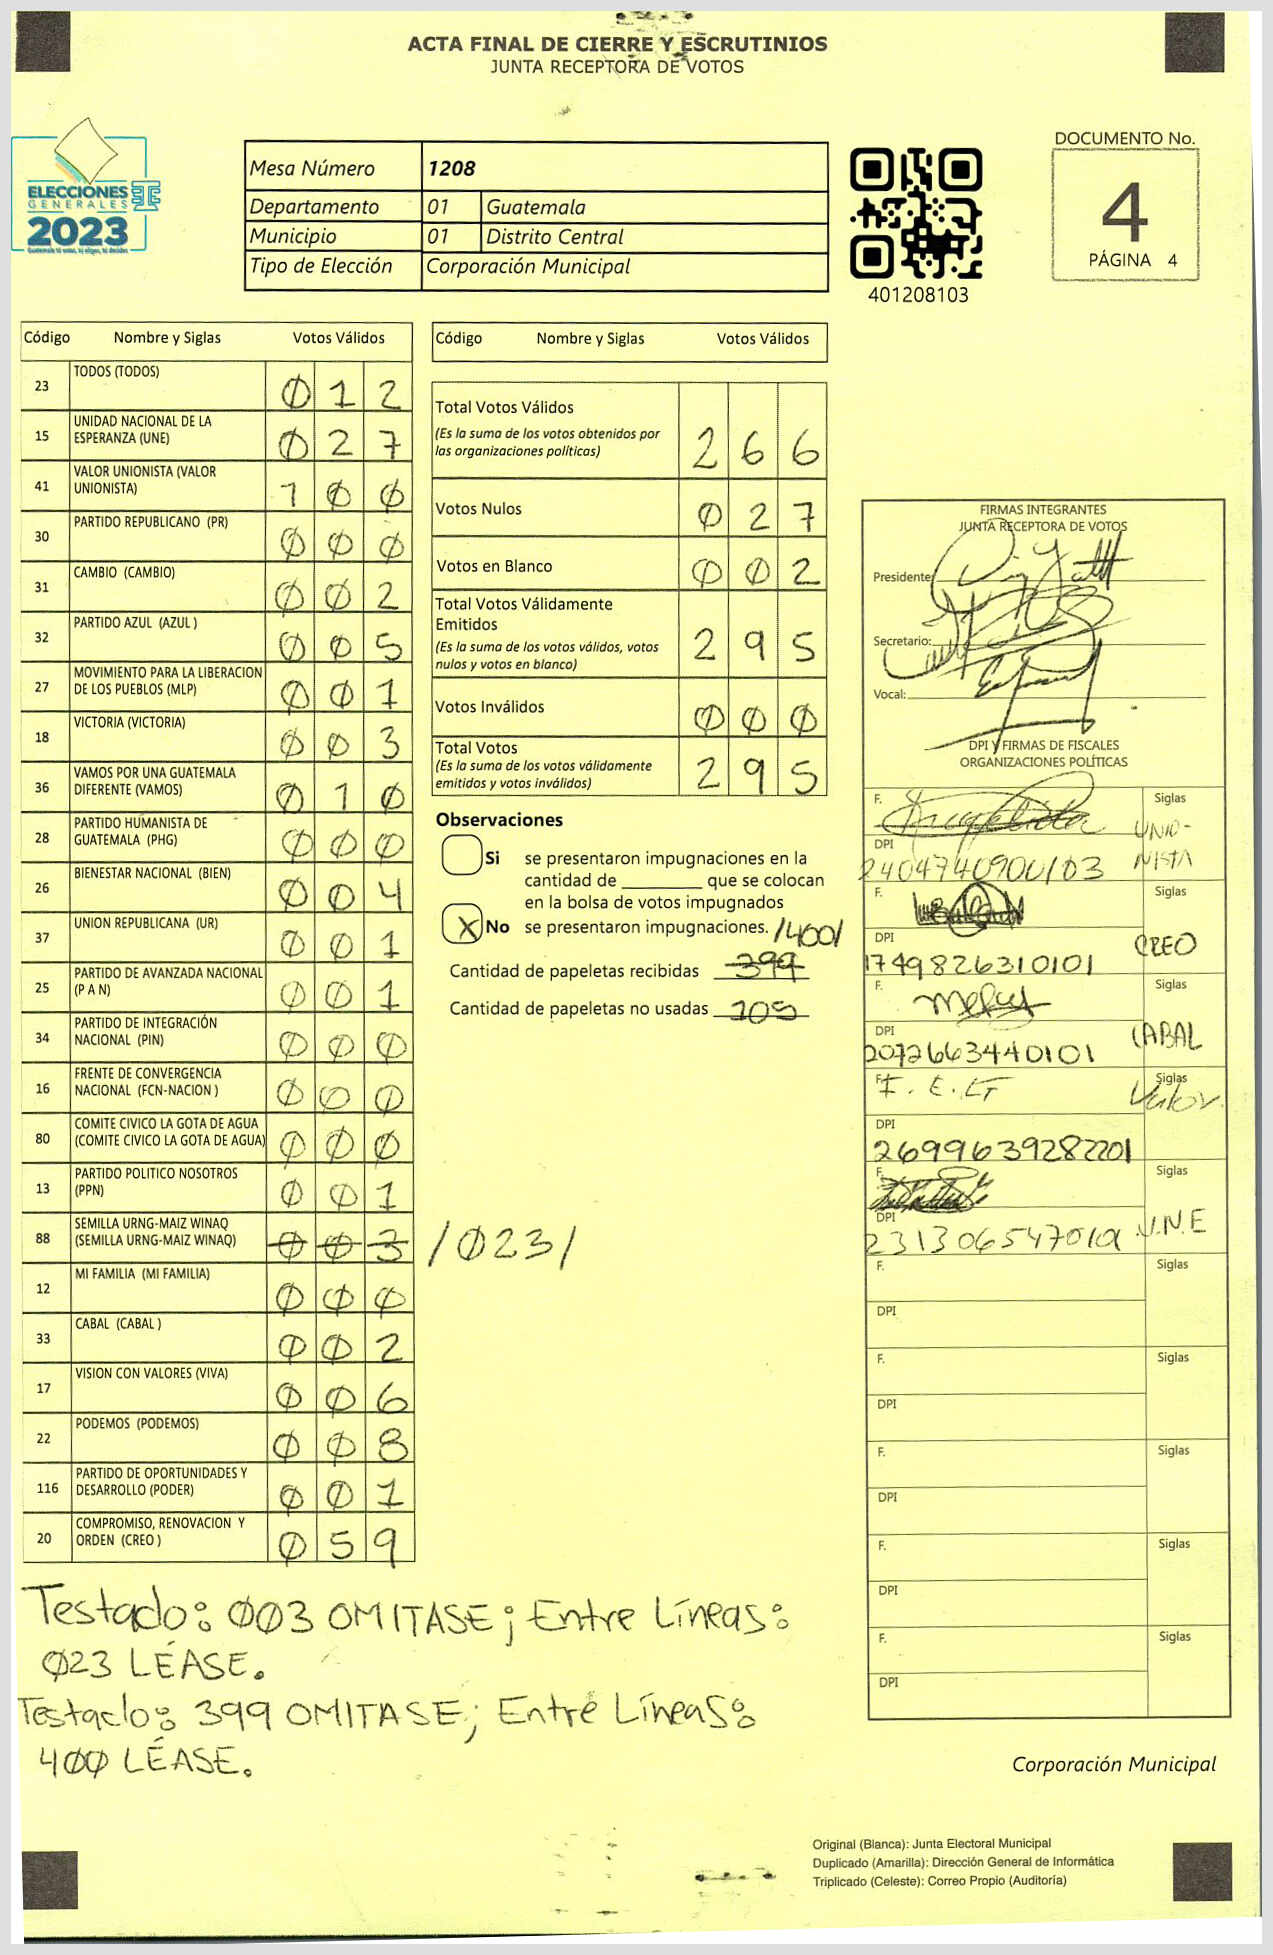 ACTA FINAL DE CIERRE Y ESCRUTINIOS
JUNTA RECEPTORA DE VOTOS
ELECCIONES
GENERALES
2023
Mesa Número 1208
Departamento 01 Guatemala
Municipio 01 Distrito Central
Tipo de Elección Corporación Municipal
401208103
DOCUMENTO No.
4
PÁGINA 4
Código Nombre y Siglas Votos Válidos
23 TODOS (TODOS) 0 1 2
15 UNIDAD NACIONAL DE LA
ESPERANZA (UNE) 0 2 7
41 VALOR UNIONISTA (VALOR
UNIONISTA) 1 0 0
30 PARTIDO REPUBLICANO (PR) 0 0 0
31 CAMBIO (CAMBIO) 0 0 2
32 PARTIDO AZUL (AZUL ) 0 0 5
27 MOVIMIENTO PARA LA LIBERACION
DE LOS PUEBLOS (MLP) 0 0 1
18 VICTORIA (VICTORIA) 0 0 3
36 VAMOS POR UNA GUATEMALA
DIFERENTE (VAMOS) 0 1 0
28 PARTIDO HUMANISTA DE
GUATEMALA (PHG) 0 0 0
26 BIENESTAR NACIONAL (BIEN) 0 0 4
37 UNION REPUBLICANA (UR) 0 0 1
25 PARTIDO DE AVANZADA NACIONAL
(P A N) 0 0 1
34 PARTIDO DE INTEGRACIÓN
NACIONAL (PIN) 0 0 0
16 FRENTE DE CONVERGENCIA
NACIONAL (FCN-NACION ) 0 0 0
80 COMITE CIVICO LA GOTA DE AGUA
(COMITE CIVICO LA GOTA DE AGUA) 0 0 0
13 PARTIDO POLITICO NOSOTROS
(PPN) 0 0 1
88 SEMILLA URNG-MAIZ WINAQ
(SEMILLA URNG-MAIZ WINAQ) 0 0 3 /023/
12 MI FAMILIA (MI FAMILIA) 0 0 0
33 CABAL (CABAL ) 0 0 2
17 VISION CON VALORES (VIVA) 0 0 6
22 PODEMOS (PODEMOS) 0 0 8
116 PARTIDO DE OPORTUNIDADES Y
DESARROLLO (PODER) 0 0 1
20 COMPROMISO, RENOVACION Y
ORDEN (CREO ) 0 5 9
Código Nombre y Siglas Votos Válidos
Total Votos Válidos
(Es la suma de los votos obtenidos por
las organizaciones políticas) 2 6 6
Votos Nulos 0 2 7
Votos en Blanco 0 0 2
Total Votos Válidamente
Emitidos
(Es la suma de los votos válidos, votos
nulos y votos en blanco) 2 9 5
Votos Inválidos 0 0 0
Total Votos
(Es la suma de los votos válidamente
emitidos y votos inválidos) 2 9 5
Observaciones
Si se presentaron impugnaciones en la
cantidad de ________ que se colocan
en la bolsa de votos impugnados
X No se presentaron impugnaciones. /400/
Cantidad de papeletas recibidas 399
Cantidad de papeletas no usadas 105
FIRMAS INTEGRANTES
JUNTA RECEPTORA DE VOTOS
Presidente:
Secretario:
Vocal:
DPI Y FIRMAS DE FISCALES
ORGANIZACIONES POLÍTICAS
F. Siglas
UNIO-
NISTA
DPI
2404740900103
F. Siglas
CREO
DPI
1749826310101
F. Siglas
CABAL
DPI
2072663440101
F. Siglas
Valor
DPI
2699639282201
F. Siglas
U.N.E
DPI
F. Siglas
DPI
F. Siglas
DPI
F. Siglas
DPI
F. Siglas
DPI
F. Siglas
DPI
Testado: 003 OMITASE; Entre Líneas:
023 LÉASE.
Testado: 399 OMITASE; Entre Líneas:
400 LÉASE.
Corporación Municipal
Original (Blanca): Junta Electoral Municipal
Duplicado (Amarilla): Dirección General de Informática
Triplicado (Celeste): Correo Propio (Auditoría)